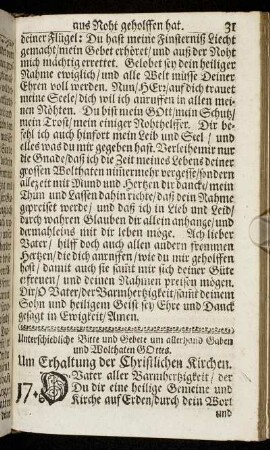 aus Noht geholffen hat. 31
deiner Flügel: Du hast meine Finsterniß Liecht
gemacht/mein Gebet erhöret/und auß der Noht
mich mächtig errettet. Gelobet sey dein heiliger
Nahme ewiglich/und alle Welt müsse Deiner
Ehren voll werden. Nun/HErr/auf dich trauet
meine Seele/dich wil ich anruffen in allen mei-
nen Nöhten. Du bist mein GOtt/mein Schutz/
mein Trost/mein einiger Nohthelffer. Dir be-
fehl ich auch hinfort mein Leib und Seel/ und
alles was du mir gegeben hast. Verleihe mir nur
die Gnade/daß ich die Zeit meines Lebens deiner
grossen Wolthaten nimermehr vergesse/sondern
allezeit mit Mund und Hertzen dir dancke/mein
Thun und Lassen dahin richte/daß dein Nahme
gepreiset werde/ und daß ich in Lieb und Leid/
durch wahren Glauben dir allein anhange/und
dermahleins mit dir leben möge. Ach lieber
Vater/ hilff doch auch allen andern frommen
Hertzen/die dich anruffen/wie du mir geholffen
hast/ damit auch sie samt mir sich deiner Güte
erfreuen/ und deinen Nahmen preisen mögen.
Dir/O Vater/der Barmhertzigkeit/samt deinem
Sohn und heiligem Geist sey Ehre und Danck
gesagt in Ewigkeit/Amen.
Unterschiedliche Bitte und Gebete um allerhand Gaben
und Wolthaten GOttes.
Um Erhaltung der Christlichen Kirchen.
17. O Vater aller Barmhertzigkeit/ der
Du dir eine heilige Gemeine und
Kirche auf Erden/durch dein Wort
und